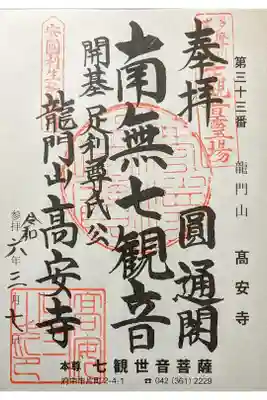 第三十三番
龍門山
高安寺
奉拝
圓通閣
南無七観音
開基 足利尊氏公
龍門山高安寺
参拝 令和六年三月七日
本尊 七観世音菩薩
府中市片町2-4-1 ☎ 042 (361) 2229